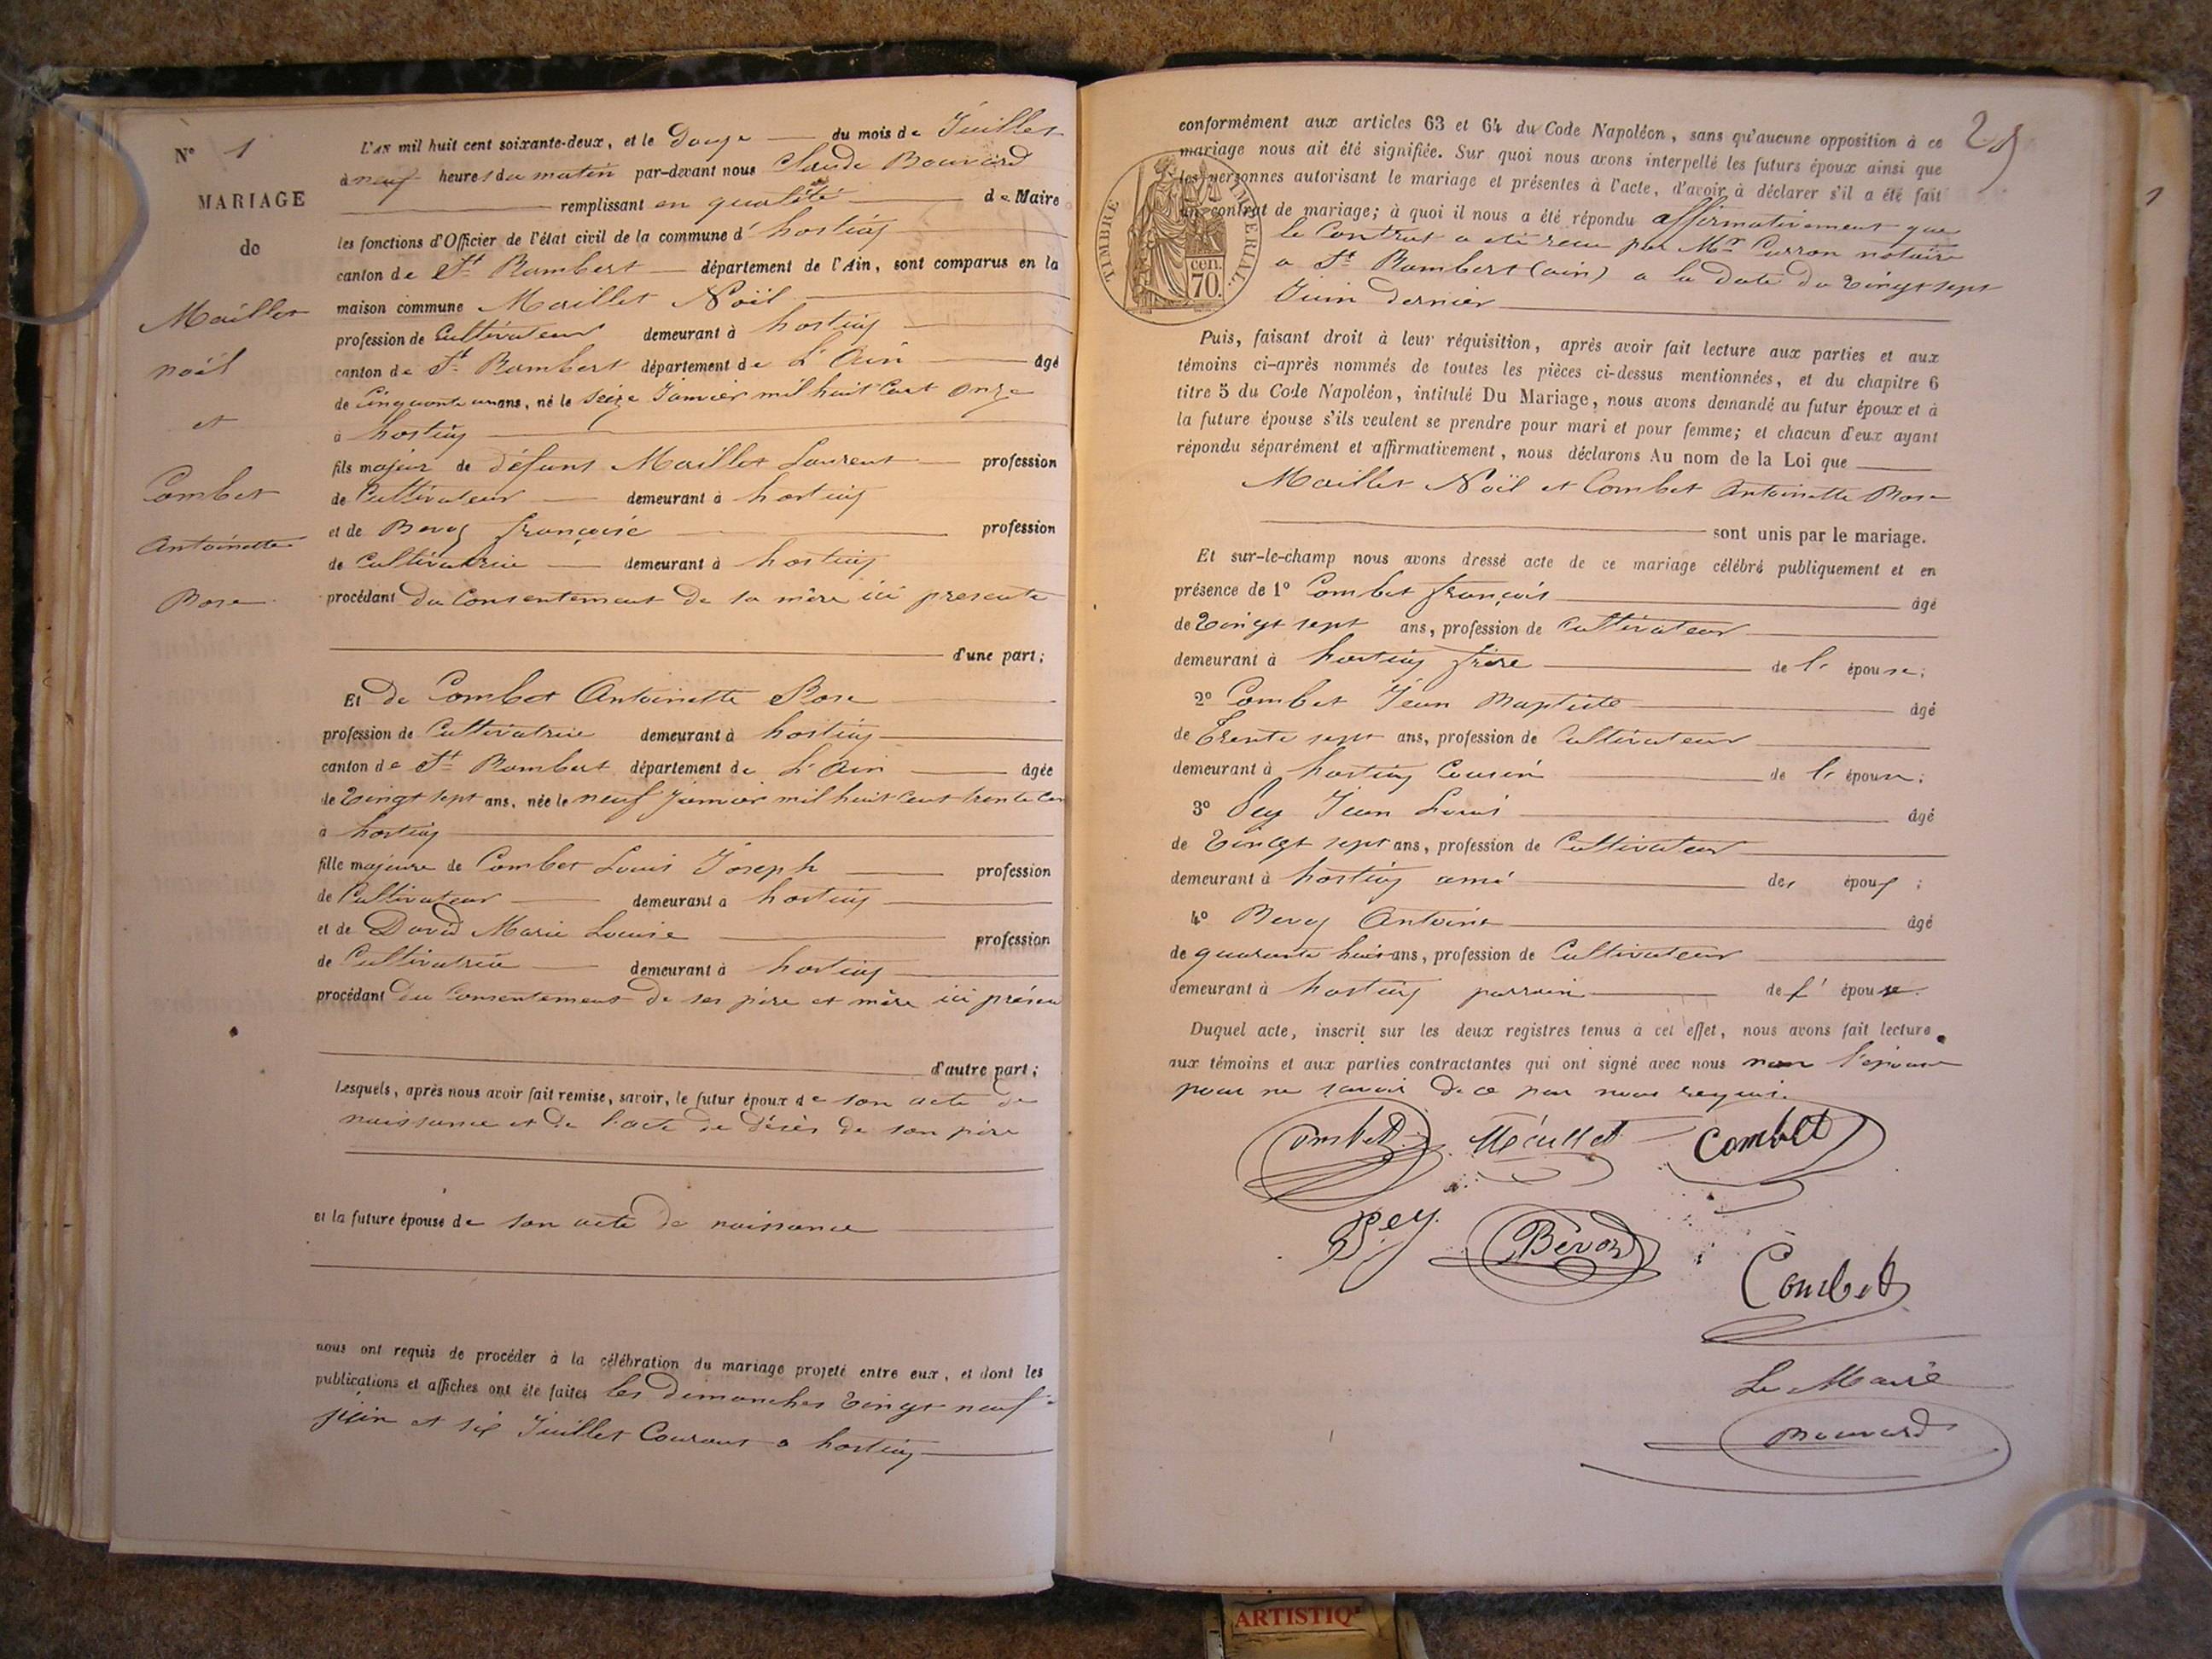 N° 1
MARIAGE
de
Maillet
noël
et
Combet
Antoinette
Rose
L'AN mil huit cent soixante-deux, et le Douze du mois de Juillet
à neuf heures du matin par-devant nous Claude Bouvard
remplissant en qualité de Maire
les fonctions d'Officier de l'état civil de la commune d' hostiaz
canton de St Rambert département de l'Ain, sont comparus en la
maison commune Maillet Noël
profession de Cultivateur demeurant à hostiaz
canton de St Rambert département de L'Ain âgé
de Cinquante un ans, né le Seize Janvier mil huit Cent Onze
à hostiaz
fils majeur de défunt Maillet Laurent profession
de Cultivateur demeurant à hostiaz
et de Bevoz françoise profession
de Cultivatrice demeurant à hostiaz
procédant du Consentement de sa mère ici presente
d'une part;
Et de Combet Antoinette Rose
profession de Cultivatrice demeurant à hostiaz
canton de St Rambert département de L'Ain âgée
de Vingt sept ans, née le neuf Janvier mil huit Cent trente
à hostiaz
fille majeure de Combet Louis Joseph profession
de Cultivateur demeurant à hostiaz
et de David Marie Louise profession
de Cultivatrice demeurant à hostiaz
procédant du Consentement de ses père et mère ici présen
d'autre part;
Lesquels, après nous avoir fait remise, savoir, le futur époux de son acte de
naissance et de l'acte de décès de son père
et la future épouse de son acte de naissance
nous ont requis de procéder à la célébration du mariage projeté entre eux, et dont les
publications et affiches ont été faites les dimanches Vingt neuf
juin et six Juillet Courant a hostiaz
25
conformément aux articles 63 et 64 du Code Napoléon, sans qu'aucune opposition à ce
mariage nous ait été signifiée. Sur quoi nous avons interpellé les futurs époux ainsi que
les personnes autorisant le mariage et présentes à l'acte, d'avoir à déclarer s'il a été fait
un contrat de mariage; à quoi il nous a été répondu affirmativement que
le Contrat a été recu par Mr Carron notaire
a St Rambert (ain) a la date du Vingt sept
Juin dernier
TIMBRE IMPÉRIAL
cen.
70.
Puis, faisant droit à leur réquisition, après avoir fait lecture aux parties et aux
témoins ci-après nommés de toutes les pièces ci-dessus mentionnées, et du chapitre 6
titre 5 du Code Napoléon, intitulé Du Mariage, nous avons demandé au futur époux et à
la future épouse s'ils veulent se prendre pour mari et pour femme; et chacun d'eux ayant
répondu séparément et affirmativement, nous déclarons Au nom de la Loi que
Maillet Noël et Combet Antoinette Rose
sont unis par le mariage.
Et sur-le-champ nous avons dressé acte de ce mariage célébré publiquement et en
présence de 1° Combet françois âgé
de Vingt sept ans, profession de Cultivateur
demeurant à hostiaz frère de l' épouse;
2° Combet Jean Baptiste âgé
de Trente sept ans, profession de Cultivateur
demeurant à hostiaz Cousin de l' épouse;
3° Pey Jean Louis âgé
de Vingt sept ans, profession de Cultivateur
demeurant à hostiaz ami des époux;
4° Bevoz Antoine âgé
de quarante huit ans, profession de Cultivateur
demeurant à hostiaz parrain de l' épouse.
Duquel acte, inscrit sur les deux registres tenus à cet effet, nous avons fait lecture
aux témoins et aux parties contractantes qui ont signé avec nous non l'épouse
pour ne savoir de ce par nous requise.
Combet Maillet Combet
Pey Bevoz
Combet
Le Maire
Bouvard
1
ARTISTIQ